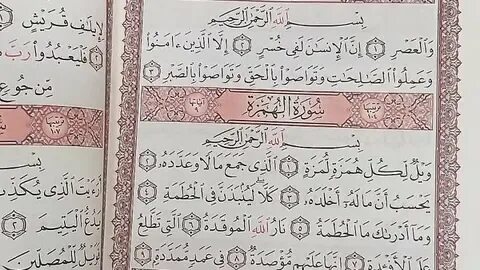 بِسْمِ ٱللَّهِ ٱلرَّحْمَٰنِ ٱلرَّحِيمِ
وَٱلْعَصْرِ ١ إِنَّ ٱلْإِنسَٰنَ لَفِى خُسْرٍ ٢ إِلَّا ٱلَّذِينَ ءَامَنُوا۟
وَعَمِلُوا۟ ٱلصَّٰلِحَٰتِ وَتَوَاصَوْا۟ بِٱلْحَقِّ وَتَوَاصَوْا۟ بِٱلصَّبْرِ ٣
سُورَةُ الهُمَزَةِ
بِسْمِ ٱللَّهِ ٱلرَّحْمَٰنِ ٱلرَّحِيمِ
وَيْلٌ لِّكُلِّ هُمَزَةٍ لُّمَزَةٍ ١ ٱلَّذِى جَمَعَ مَالًا وَعَدَّدَهُۥ ٢
يَحْسَبُ أَنَّ مَالَهُۥٓ أَخْلَدَهُۥ ٣ كَلَّا لَيُنۢبَذَنَّ فِى ٱلْحُطَمَةِ ٤
وَمَآ أَدْرَىٰكَ مَا ٱلْحُطَمَةُ ٥ نَارُ ٱللَّهِ ٱلْمُوقَدَةُ ٦ ٱلَّتِى تَطَّلِعُ
عَلَى ٱلْأَفْـِٔدَةِ ٧ إِنَّهَا عَلَيْهِم مُّؤْصَدَةٌ ٨ فِى عَمَدٍ مُّمَدَّدَةٍۭ ٩
لِإِيلَٰفِ قُرَيْشٍ
فَلْيَعْبُدُوا۟ رَبَّ
مِّن جُوعٍ
بِسْمِ
أَرَءَيْتَ ٱلَّذِى يُكَذِّبُ
يَدُعُّ ٱلْيَتِيمَ ٢
فَوَيْلٌ لِّلْمُصَلِّينَ